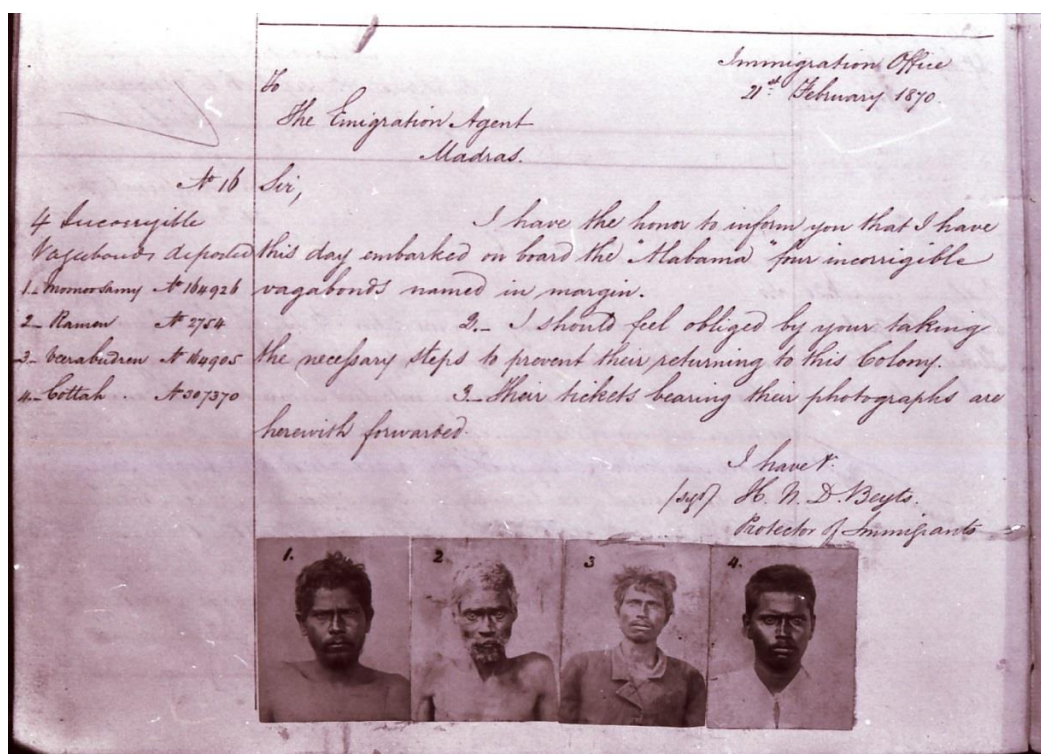 Immigration Office
21st February 1870.
To
The Emigration Agent
Madras.
No 16
Sir,
4 Incorrigible
Vagabonds deported
1_ Moonoosamy No 164926
2_ Ramen No 2754
3_ Veerabudren No 164905
4_ Cottah. No 307370
I have the honor to inform you that I have
this day embarked on board the "Alabama" four incorrigible
vagabonds named in margin.
2._ I should feel obliged by your taking
the necessary steps to prevent their returning to this Colony.
3_ Their tickets bearing their photographs are
herewith forwarded.
I have &.
(sigd) H. N. D. Beyts.
Protector of Immigrants
1. 2. 3 4.